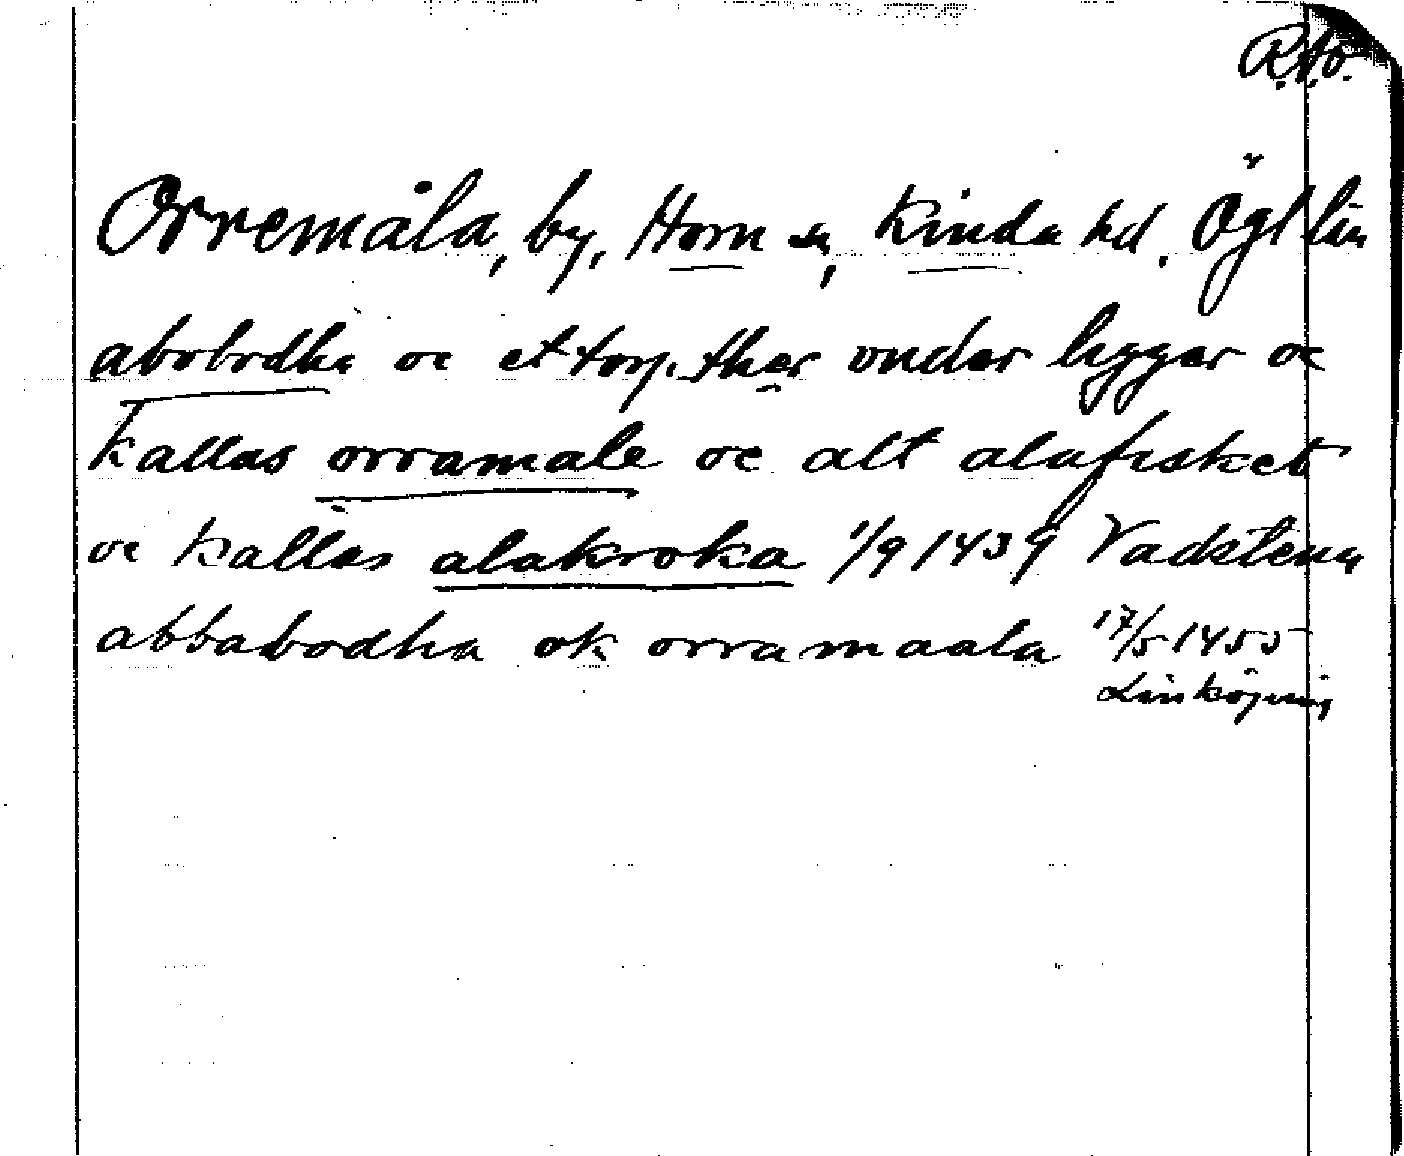 R.A.O.
Orremåla, by, Horn sn, Kinda hd. Ögl län
abobodha oc et torp ther vnder ligger oc
kallas orramale oc alt alafisket
oc kallas alakroka 1/9 1439 Vadstena
abbabodha ok orramaala 17/5 1455
Linköping